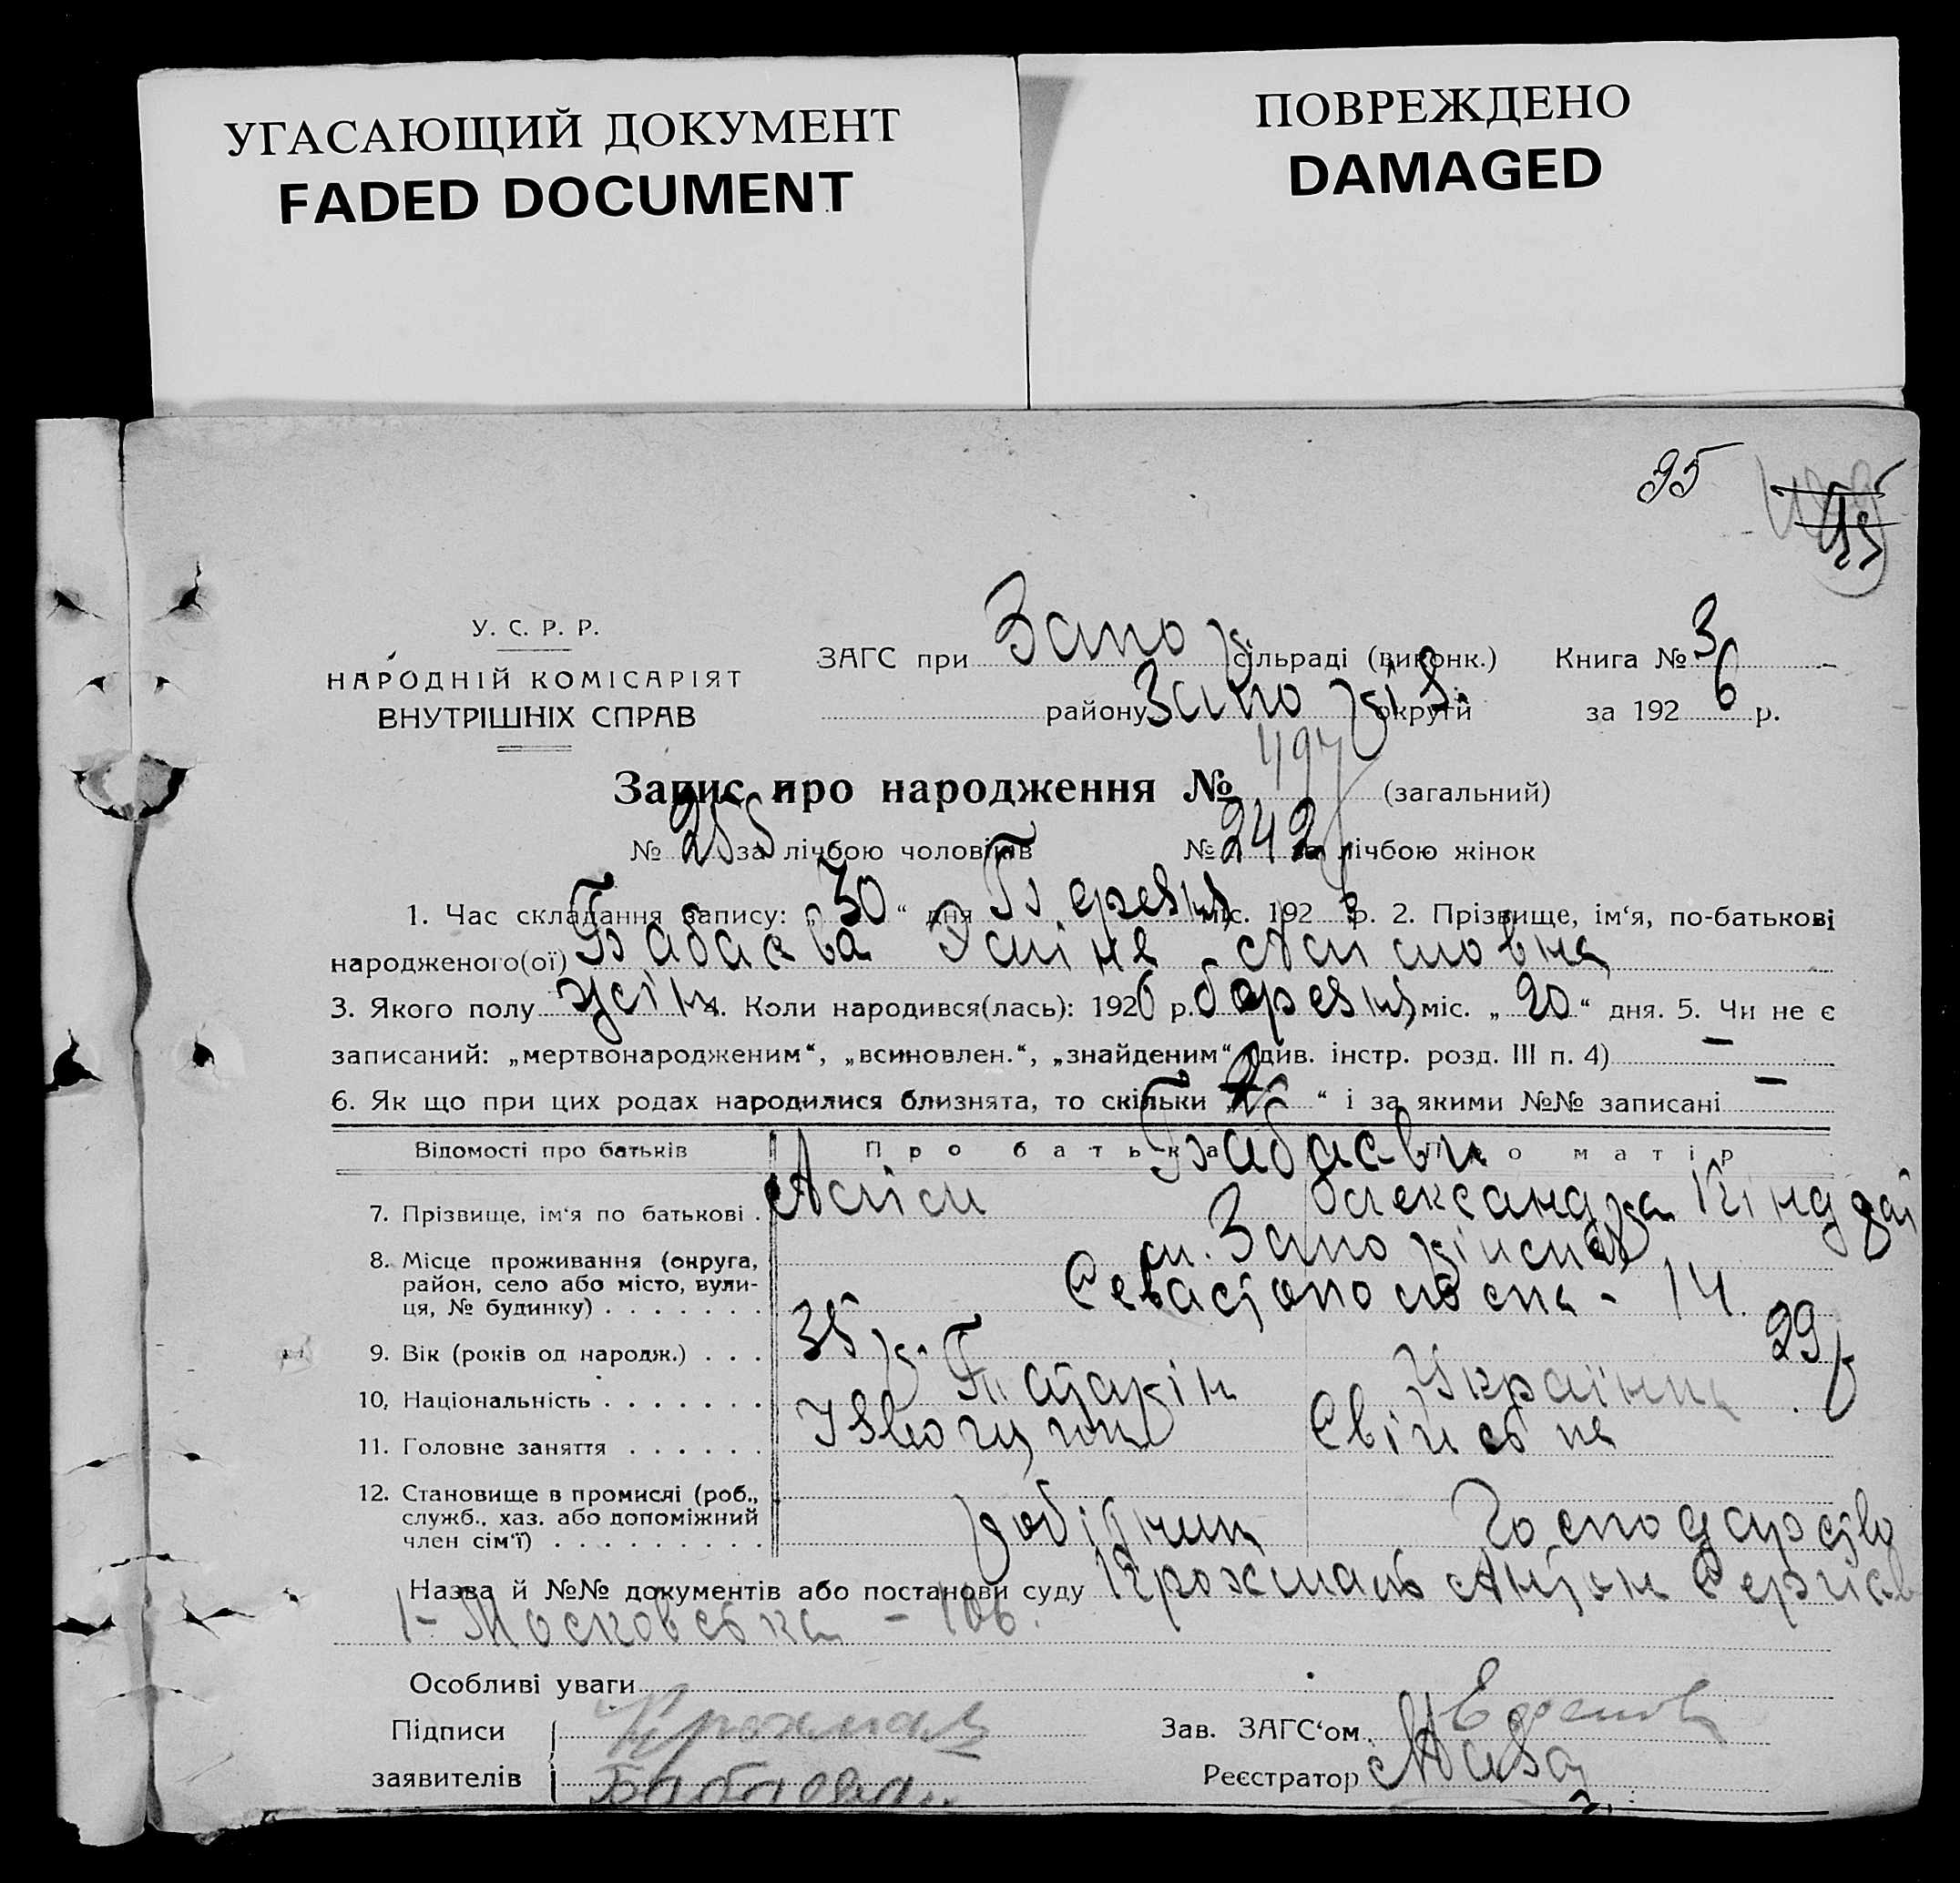 УГАСАЮЩИЙ ДОКУМЕНТ
FADED DOCUMENT
ПОВРЕЖДЕНО
DAMAGED
95
У. С. Р. Р.
НАРОДНІЙ КОМІСАРІЯТ
ВНУТРІШНІХ СПРАВ
ЗАГС при Запор сільраді (виконк.) Книга № 3
району Запоріз. округи за 1926 р.
Запис про народження № 497 (загальний)
№ 255 за лічбою чоловіків № 242 лічбою жінок
1. Час складання запису: 30 “ дня Березня міс. 192 р. 2. Прізвище, ім‘я, по-батькові
народженого(ої) Бабаєва
3. Якого полу жін. 4. Коли народився(лась): 1926 р. березня міс. „ 20 “ дня. 5. Чи не є
записаний: „мертвонародженим“, „всиновлен.“, „знайденим“ (див. інстр. розд. III п. 4) —
6. Як що при цих родах народилися близнята, то скільки “ і за якими №№ записані —
Відомості про батьків Про батька Про матір
Бабаєви
7. Прізвище, ім‘я по батькові . Аслім Олександра
8. Місце проживання (округа, м. Запоріжжя
район, село або місто, вули- Севастопольська - 14.
ця, № будинку) . . . . . . .
9. Вік (років од народж.) . . . 35 р. 29 р
10. Національність . . . . . . . Татарін Українка
11. Головне заняття . . . . . . Ізвощик Свійське
12. Становище в промислі (роб.,
служб., хаз. або допоміжний
член сім‘ї) . . . . . . . . . робітник Господарство
Назва й №№ документів або постанови суду Крохмаль Антон Сергієв
1- Московська - 106.
Особливі уваги
Підписи Крохмаль Зав. ЗАГС‘ом
заявителів Бабаева Реєстратор